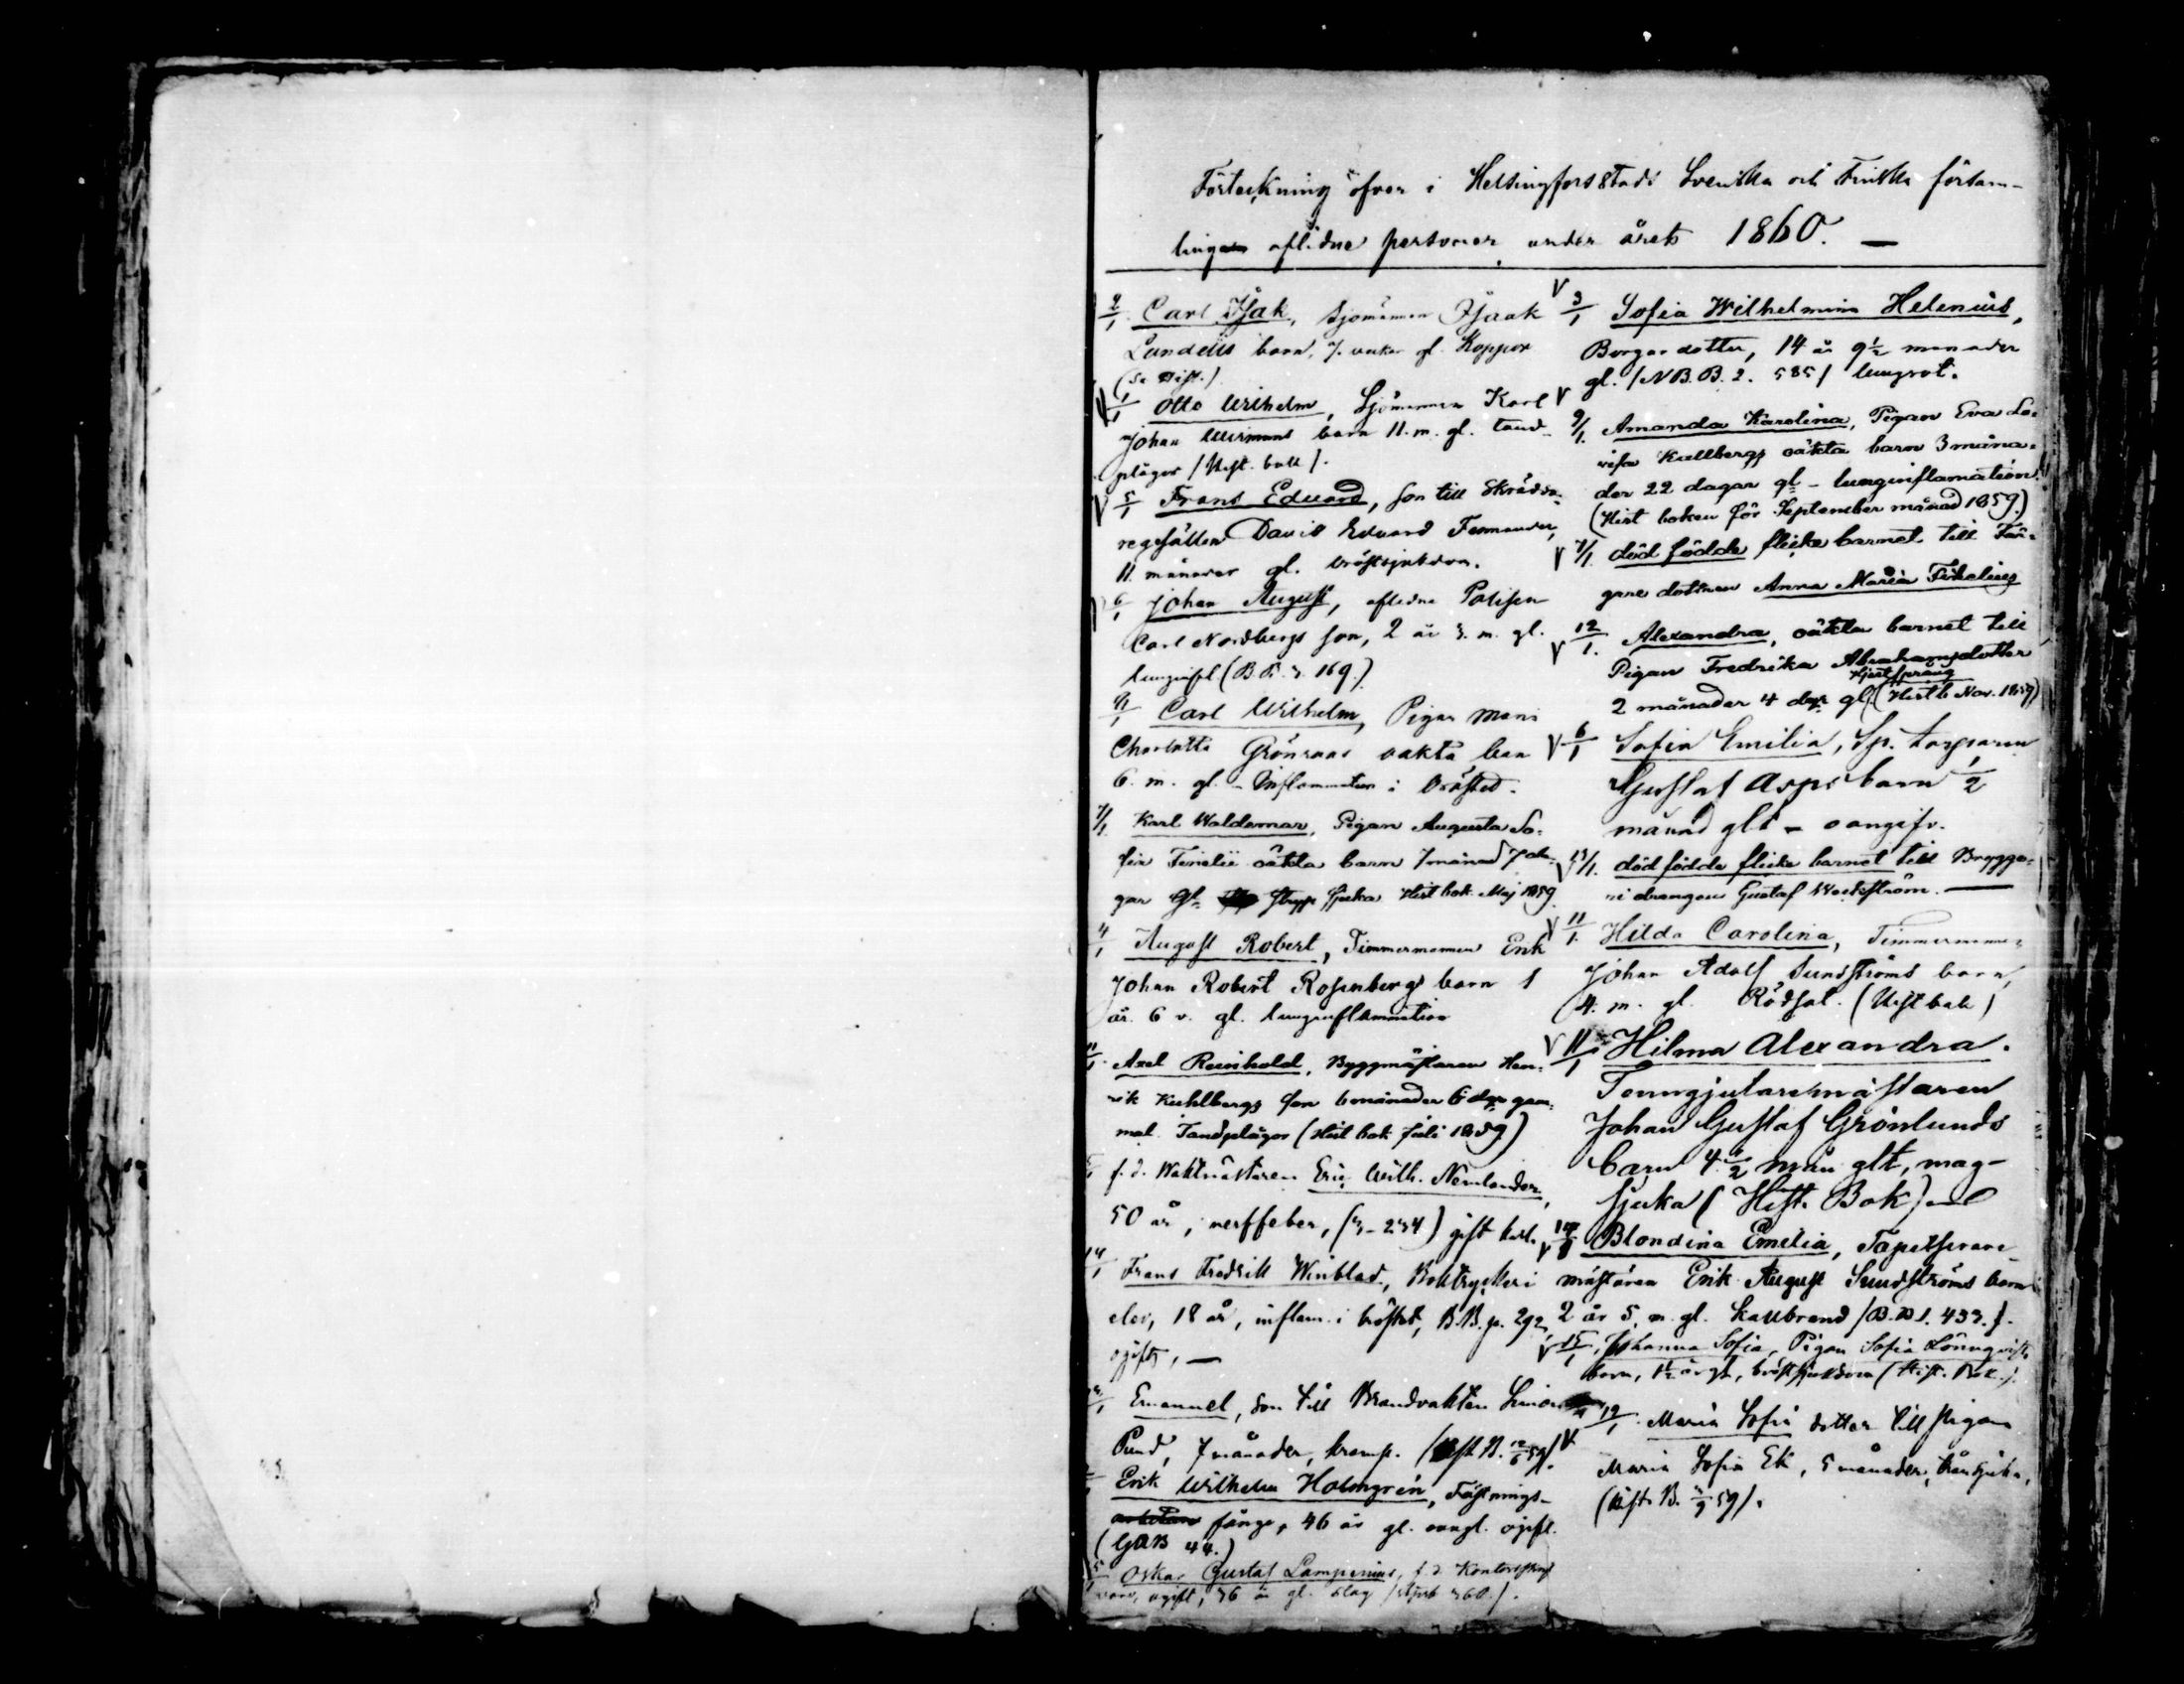 Förteckning öfver i Helsingfors Stads Svenska och Finska försam-
lingen aflidne personer under året 1860. —
2/1 Carl Isak, Sjömannen Isaak
Lundells barn, 7. veckor gl. Koppor
Otto Wilhelm, Sjömannen Karl
Johan barn 11. m. gl. tand-
plågor (Hist. bok).
5/1 Frans Edvard, son till Skrädda-
regesällen David Edvard
11 månader gl. bröstsjukdom.
6/1 Johan August, aflidne Polisen
Carl Nordbergs son, 2 år 3. m. gl.
lunginfl. (B.B. 3. 169.)
Carl Wilhelm, Pigan Maria
Charlotta Grönroos oäkta barn
6. m. gl. - Inflammation i bröstet.
7/1 Karl Waldemar, Pigan Augusta So-
fia oäkta barn 7 månad 7 da-
gar gl. Stryp sjuka Hist bok Maj 1859
August Robert, Timmermannen Erik
Johan Robert Rosenbergs barn 1
år. 6 v. gl. lunginflammation
11/1 Axel Reinhold, Byggmästaren Hen-
rik Kuhlbergs son 6 månader 6 dgr gam-
mal. Tandplågor (Hist bok Juli 1859)
f.d. Waktmästaren Eric Wilh. Nemlander,
50 år, nerffeber, (3-234) gift karl.
14/1 Frans Fredrik Winblad, Boktryckeri
elev, 18 år, inflam. i bröstet, B.B. p. 292,
ogift, —
Emanuel, son till Brandvakten Simon
Pund, 7 månader, kramp.
Erik Wilhelm Holmgren, Fästnings-
arbetare fånge, 46 år gl. ogift.
(GAB 44.)
Oskar Gustaf Lampenius, f.d. Kontorsskrif
vare, ogift, 36 år gl. slag 360.).
V 3/1 Sofia Wilhelmina Helenius,
Borgaredotter, 14 år 9 1/2 månader
gl. (N.B.B. 2. 585) lungsot.
V 9/1. Amanda Karolina, Pigan Eva Lo-
visa Kullbergs oäkta barn 3 måna-
der 22 dagar gl - lunginflamation
(Hist boken för September månad 1859.)
V 7/1. död födda flicke barnet till Fån-
gne dottren Anna Maria
V 12/1. Alexandra, oäkta barnet till
Pigan Fredrika Abrahamsdotter
Hjertsprång
2 månader 4 dgr gl. (Hist b. Nov. 1859)
V 6/1 Sofia Emilia, Sp. Torparen
Gustaf Asps barn 1/2
månad glt - oangifv.
V 13/1. död födda flicke barnet till Brygge-
ri drängen Gustaf Weckström. —
V 11/1. Hilda Carolina, Timmermannen
Johan Adolf Sundströms barn,
4. m. gl. Rödsot. (Hist bok)
V 11/1 Hilma Alexandra.
Tenngjutaremästaren
Johan Gustaf Grönlunds
barn 4 1/2 mån glt, mag-
sjuka (Hist. Bok)
V Blondina Emelia, Tapetserare-
mästaren Erik August Sundströms barn
2 år 5. m. gl. kallbrand (B.B. 1. 433.).
V 15/1. Johanna Sofia, Pigan Sofia Lönnqvists
barn, 1 1/2 år glt, bröstsjukdom (Hist. Bok.).
V 19/1. Maria Sofia dotter till Pigan
Maria Sofia Ek, 5 månader,
(Hist. B. 59).